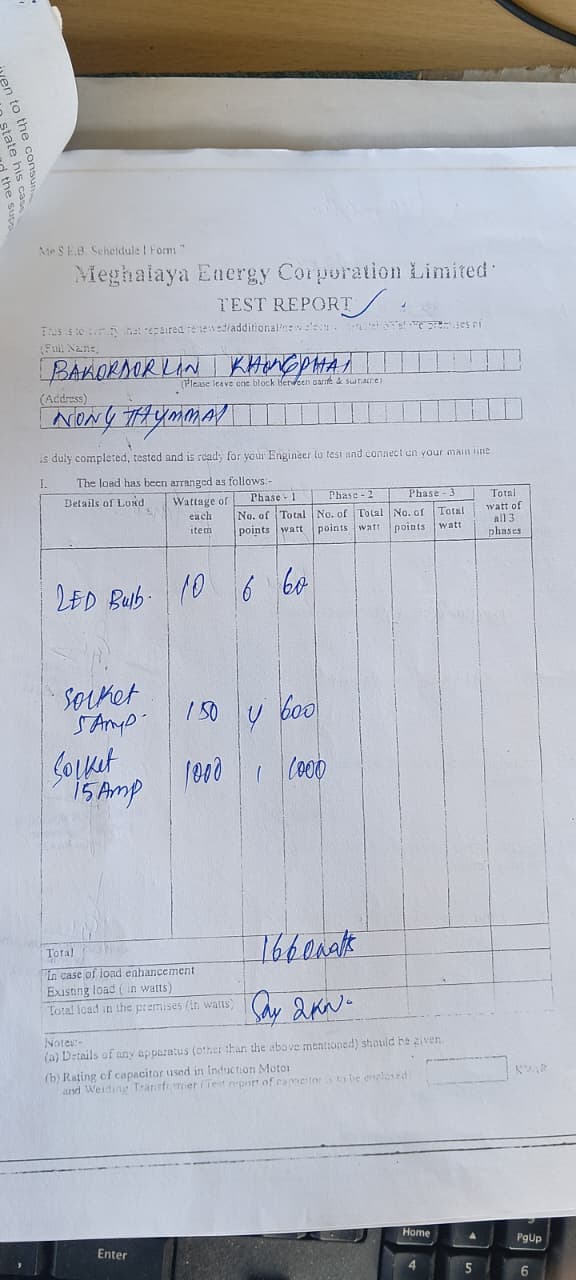 iven to the consum
state his case
d the supp
Me S.E.B. Scheidule I Form
Meghalaya Energy Corporation Limited
TEST REPORT
This is to certify that repaired/renewed/additional/new premises of
(Full Name)
BAKORDORLIN KHONGPHAI
(Please leave one block between name & surname)
(Address)
NONGTHYMMAI
is duly completed, tested and is ready for your Engineer to test and connect on your main line
I. The load has been arranged as follows:-
Details of Load Wattage of each item Phase - 1 Phase - 2 Phase - 3 Total watt of all 3 phases
No. of points Total watt No. of points Total watt No. of points Total watt
LED Bulb. 10 6 60
Socket 5 Amp 150 4 600
Socket 15 Amp 1000 1 1000
Total 1660 watts
In case of load enhancement
Existing load (in watts)
Total load in the premises (in watts) Say 2KW.
Notes:-
(a) Details of any apparatus (other than the above mentioned) should be given.
(b) Rating of capacitor used in Induction Motor KVAR
and Welding Transformer (Test report of capacitor is to be enclosed)
Home PgUp
Enter 4 5 6